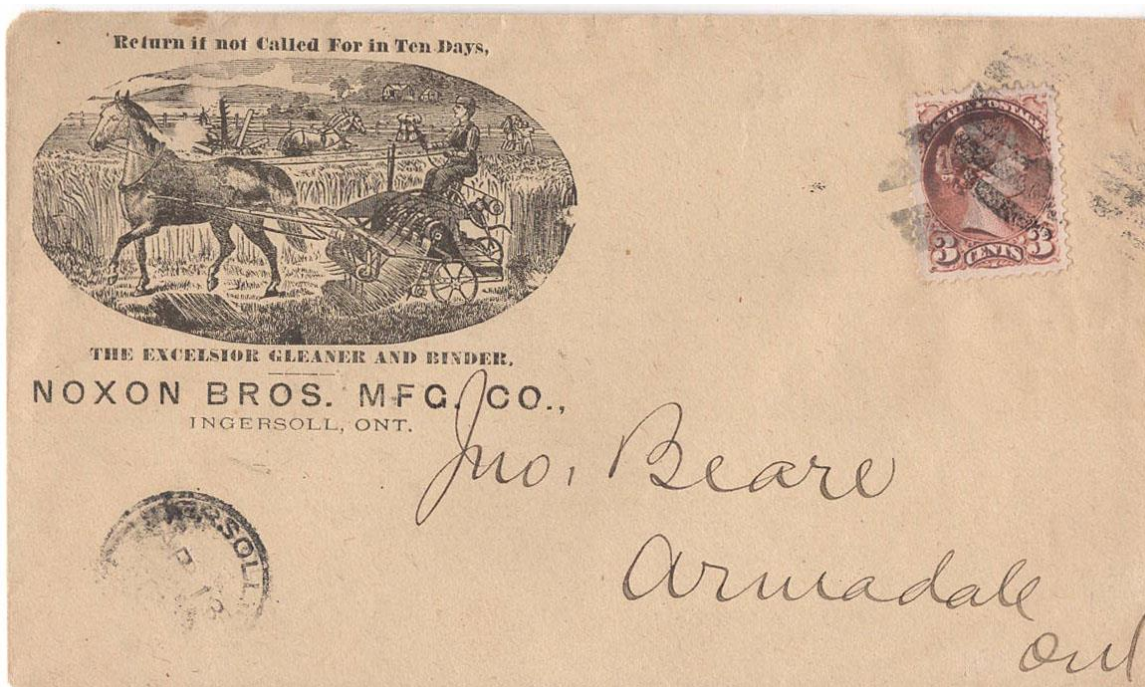 Return if not Called For in Ten Days,
THE EXCELSIOR GLEANER AND BINDER,
NOXON BROS. MFG. CO.,
INGERSOLL, ONT.
CANADA POSTAGE
3 CENTS 3
Jno. Beare
Armadale
Ont